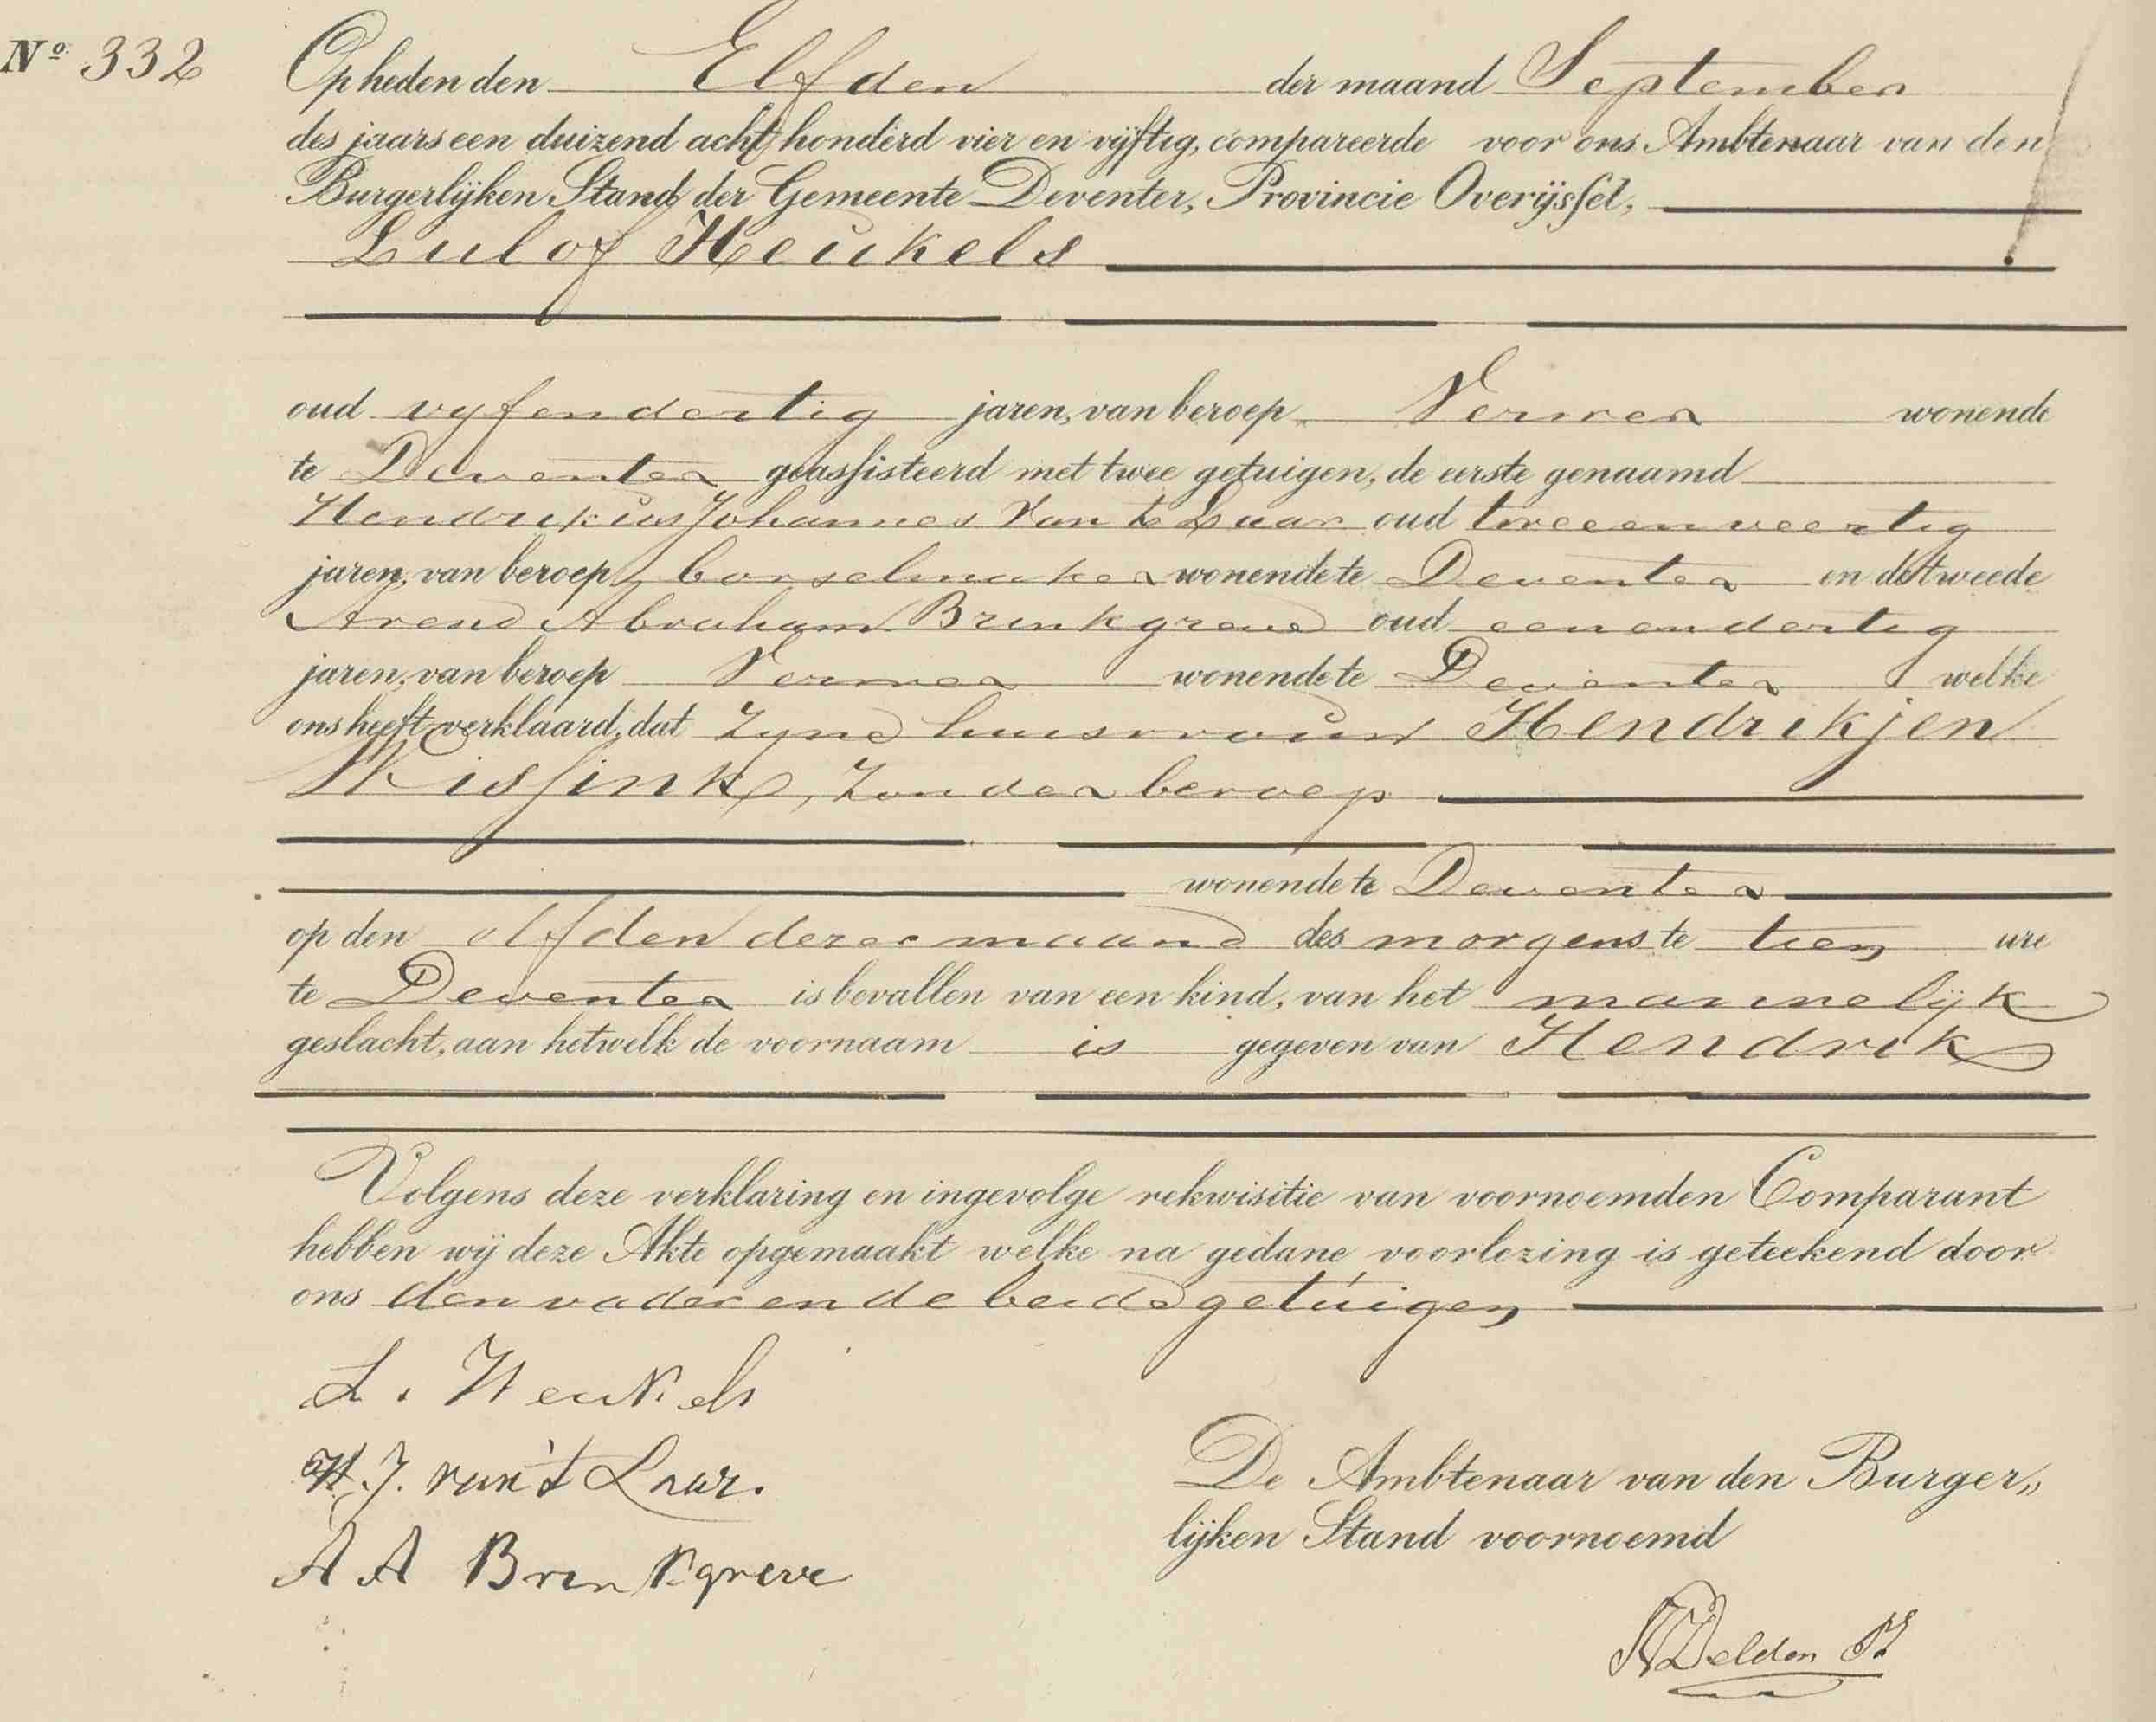 Nº 332
Op heden den Elfden der maand September
des jaars een duizend acht honderd vier en vijftig, compareerde voor ons Ambtenaar van den
Burgerlijken Stand der Gemeente Deventer, Provincie Overijssel,
Lulof Heukels
oud vyfendertig jaren, van beroep Verwer wonende
te Deventer geassisteerd met twee getuigen, de eerste genaamd
Hendrikus Johannes Van te Laar oud tweeenveertig
jaren, van beroep borselmaker wonende te Deventer en de tweede
Arend Abraham Brinkgreve oud eenendertig
jaren, van beroep Verwer wonende te Deventer welke
ons heeft verklaard, dat Zyne huisvrouw Hendrikjen
Wissink, Zonder beroep
wonende te Deventer
op den elfden dezer maand des morgens te tien ure
te Deventer is bevallen van een kind, van het mannelijk
geslacht, aan hetwelk de voornaam is gegeven van Hendrik
Volgens deze verklaring en ingevolge rekwisitie van voornoemden Comparant
hebben wij deze Akte opgemaakt welke na gedane voorlezing is geteekend door
ons den vader en de beide getuigen
L. Heukels
H. J. van 't Laar.
A A Brinkgreve
De Ambtenaar van den Burger„
lijken Stand voornoemd
Delden